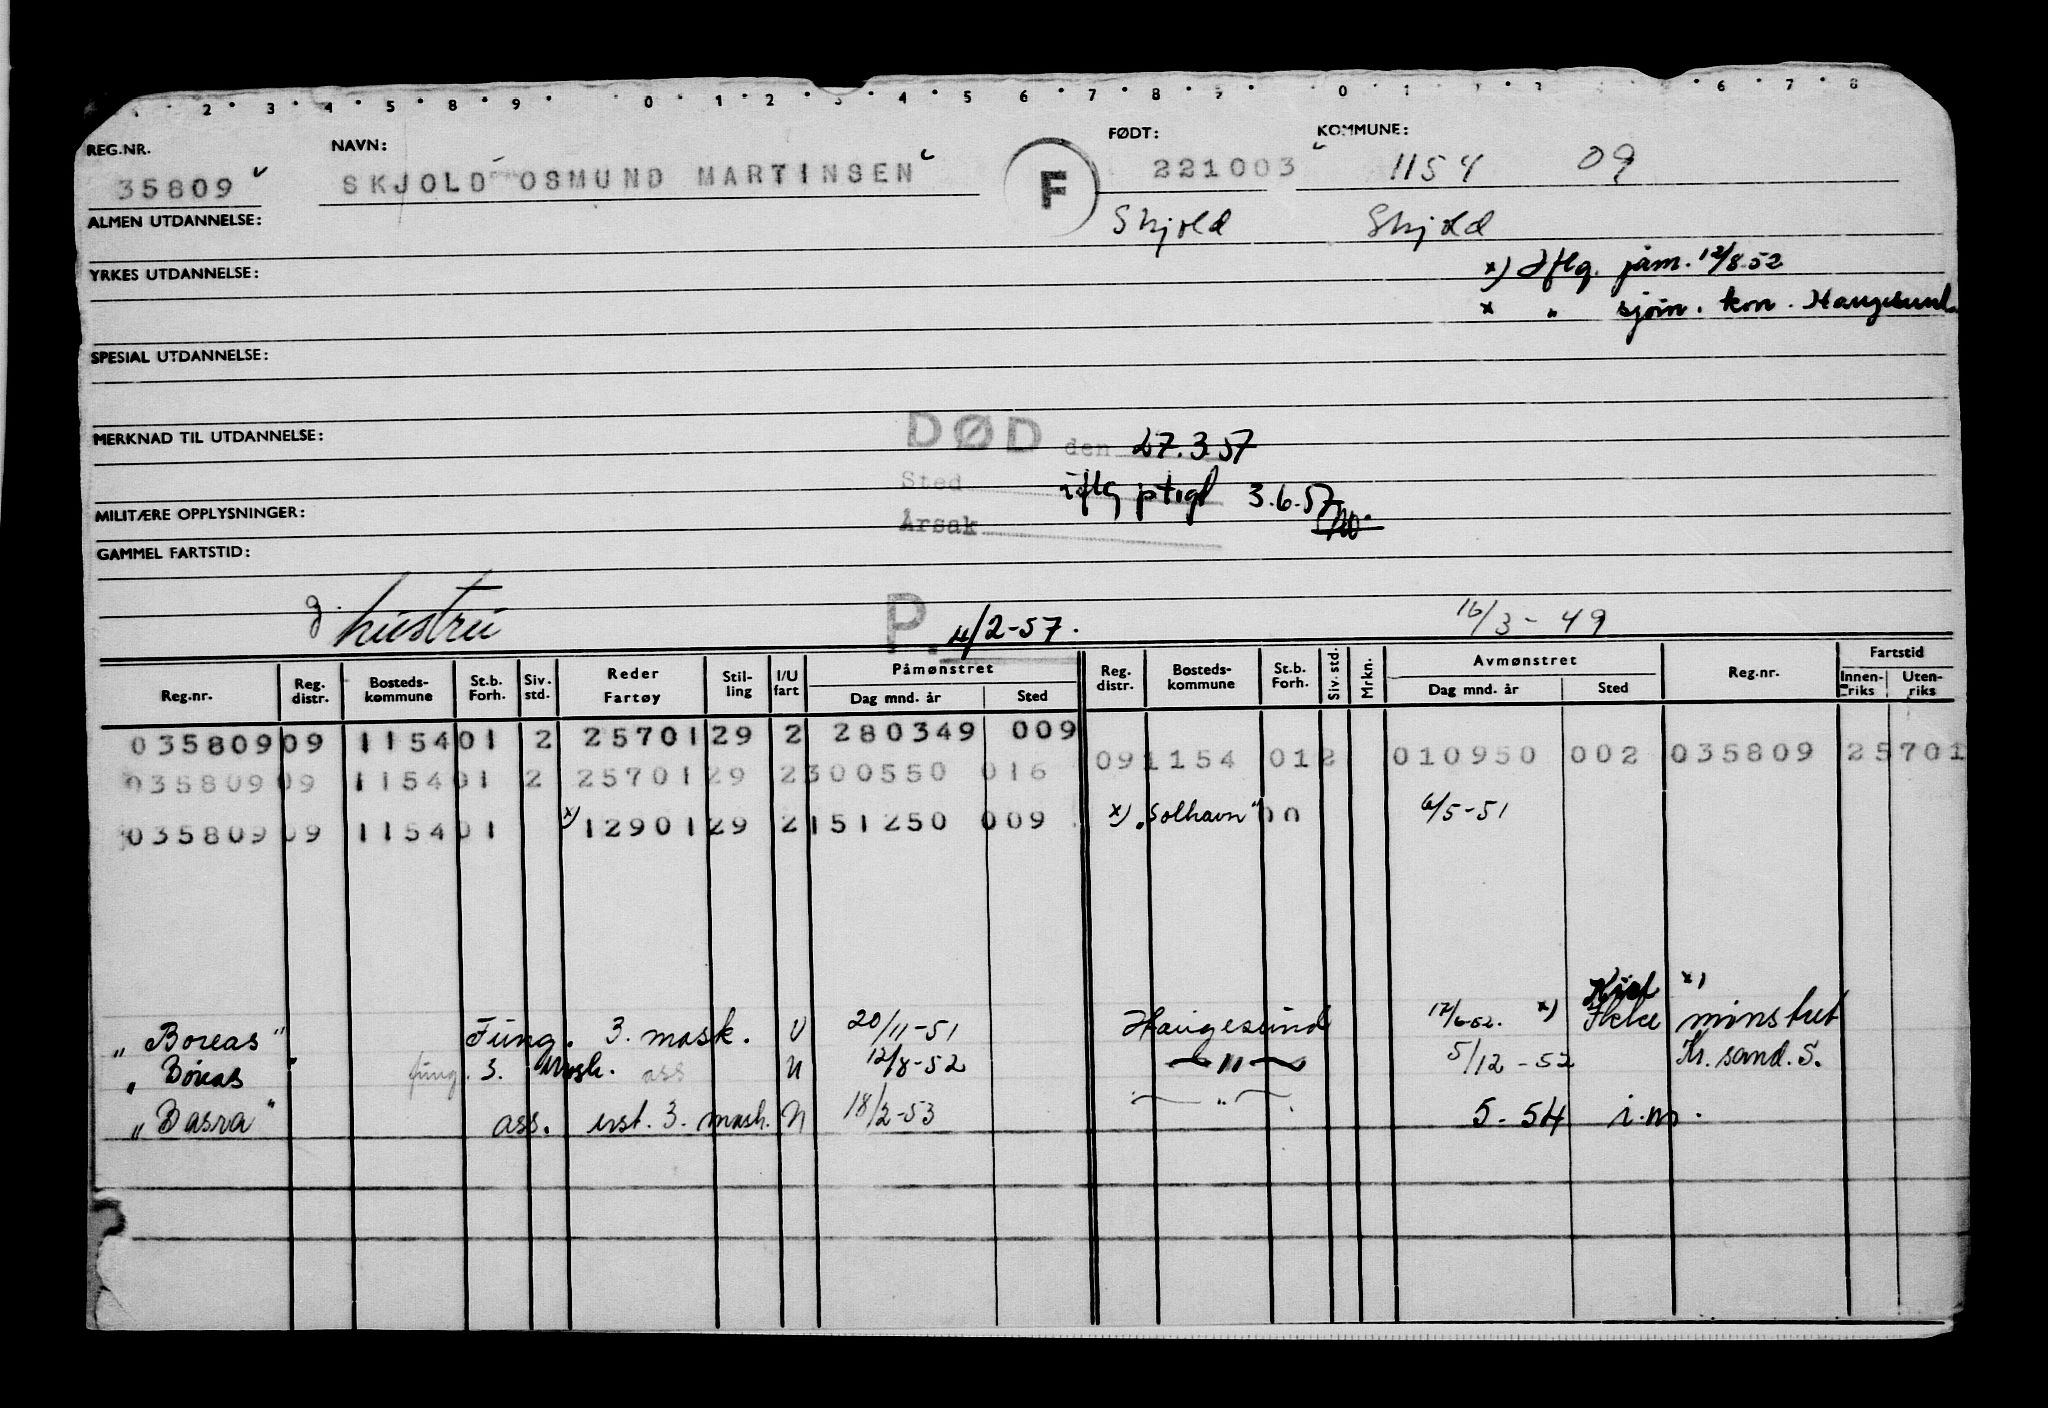 2 3 4 5 8 9 0 1 2 3 4 5 6 7 8 9 0 1 2 3 6 7 8
REG.NR. NAVN: FØDT: KOMMUNE:
35809 SKJOLD OSMUND MARTINSEN F 221003 1154 09
ALMEN UTDANNELSE: Skjold Skjold
YRKES UTDANNELSE: x) Iflg. påm. 12/8-52
x " sjøm. kon. Haugesund
SPESIAL UTDANNELSE:
MERKNAD TIL UTDANNELSE: DØD den 27.3.57
Sted iflg ptrgl 3.6.57
MILITÆRE OPPLYSNINGER: Årsak
GAMMEL FARTSTID:
g. hustru P. 4/2-57. 16/3-49
Reg.nr. Reg. distr. Bosteds-kommune St.b. Forh. Siv. std. Reder Fartøy Stil-ling I/U fart Påmønstret Dag mnd. år Sted Reg. distr. Bosteds-kommune St.b. Forh. Siv. std. Mrkn. Avmønstret Dag mnd. år Sted Reg.nr. Fartstid Innen-riks Uten-riks
035809 09 1154 01 2 25701 29 2 280349 009
091154 012 010950 002 035809 25701
035809 09 1154 01 2 25701 29 2 300550 016
035809 09 1154 01 x) 12901 29 2 151250 009 x) "Solhavn" 00 6/5-51
Kiel x)
"Boreas" Fung. 3. mask. U 20/11-51 Haugesund 12/6-52. x) Ikke mønstret
"Boreas fung. 3. Mask. ass U 12/8-52 — " — 5/12-52 Kr.sand.S.
"Basra" ass. erst. 3. mask. U 18/2-53 — " — 5-54 i.m.